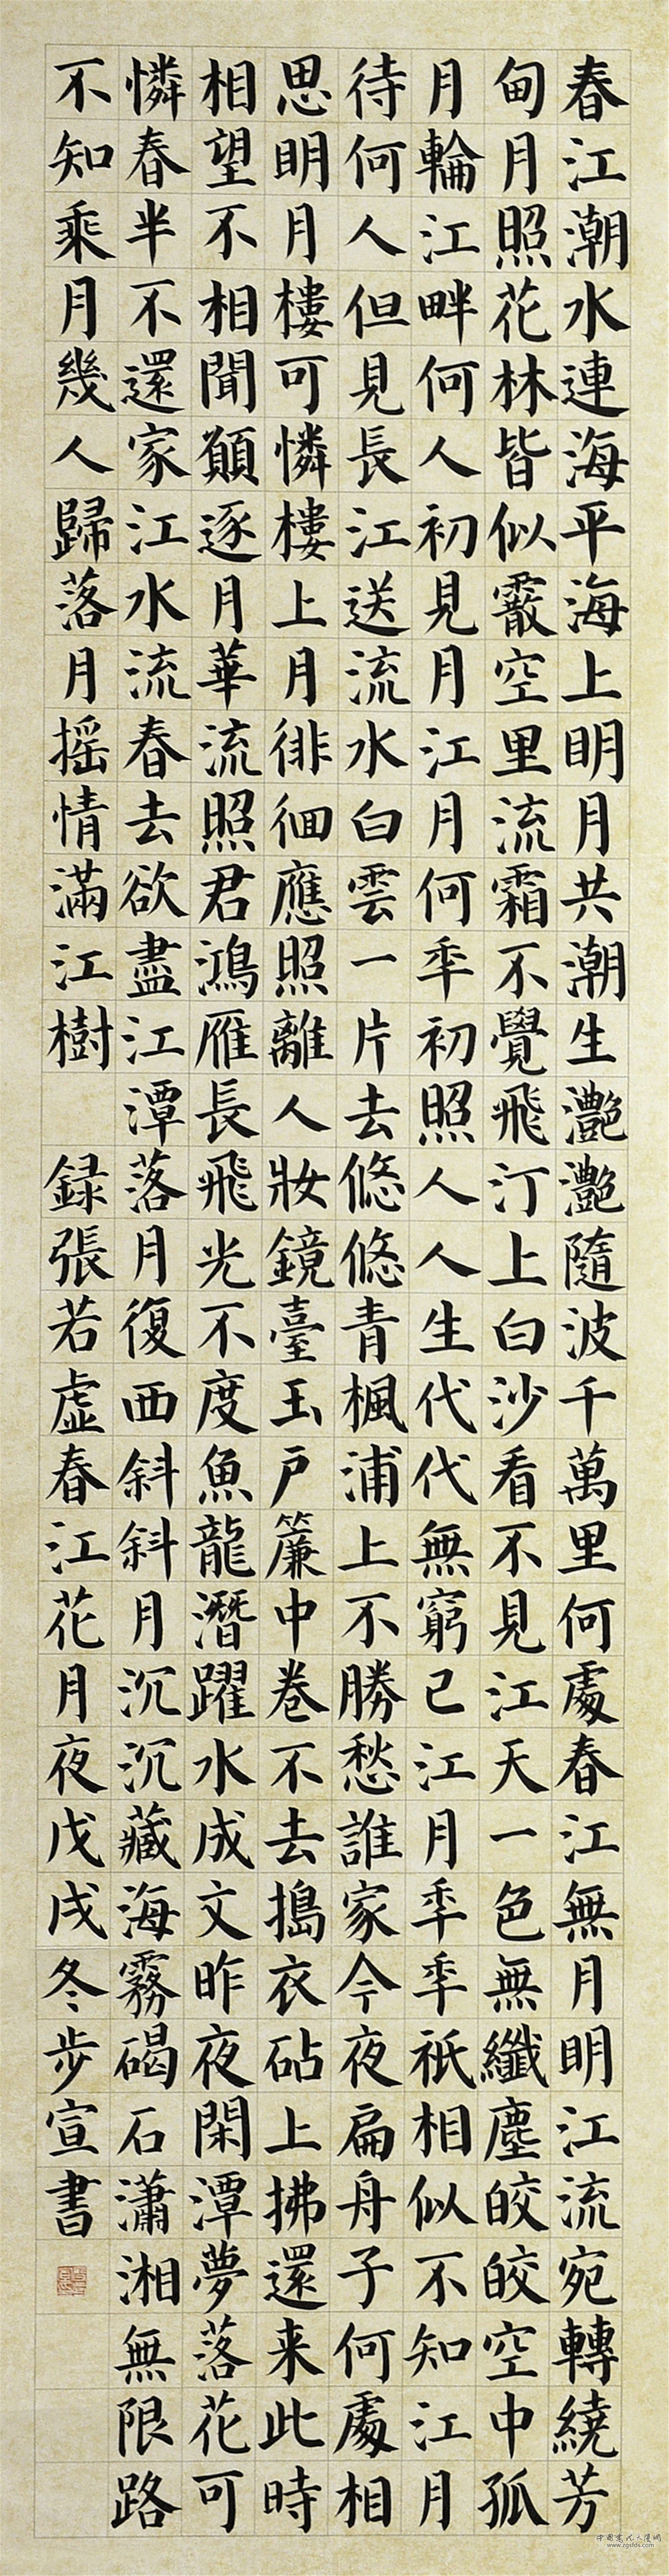 春江潮水連海平海上明月共潮生灧灧隨波千萬里何處春江無月明江流宛轉繞芳
甸月照花林皆似霰空里流霜不覺飛汀上白沙看不見江天一色無纖塵皎皎空中孤
月輪江畔何人初見月江月何年初照人人生代代無窮已江月年年祇相似不知江月
待何人但見長江送流水白雲一片去悠悠青楓浦上不勝愁誰家今夜扁舟子何處相
思明月樓可憐樓上月徘徊應照離人妝鏡臺玉戶簾中卷不去搗衣砧上拂還来此時
相望不相聞願逐月華流照君鴻雁長飛光不度魚龍潛躍水成文昨夜閑潭夢落花可
憐春半不還家江水流春去欲盡江潭落月復西斜斜月沉沉藏海霧碣石瀟湘無限路
不知乘月幾人歸落月摇情滿江樹
録張若虛春江花月夜戊戌冬步宣書
www.zgsfds.com